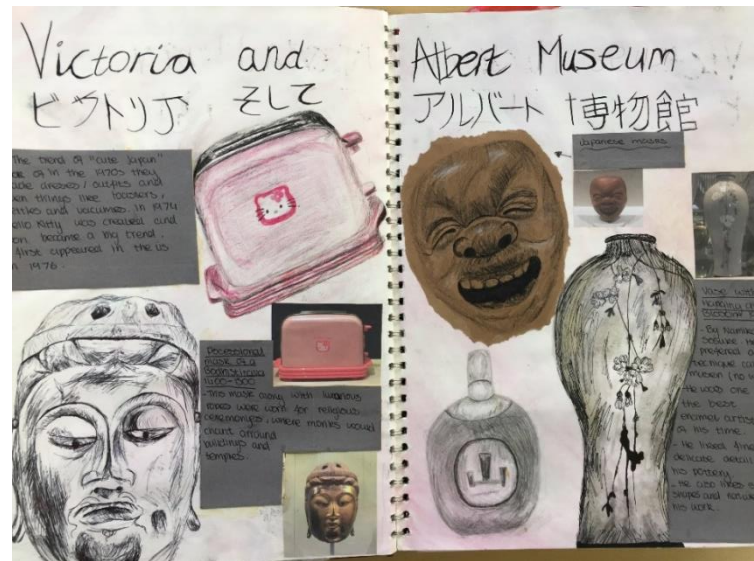 Victoria and
ビクトリア そして
The trend of "cute Japan"
of in the 1970s they
dresses / outfits and
things like toasters,
and vacumes. in 1974
Kitty was created and
became a big trend.
first appeared in the US
1976.
Processional
mask of a
Bodhisattva
-This mask along with luxurious
robes were worn for religious
ceremonies, where monks would
chant around
buildings and
temples.
Albert Museum
アルバート 博物館
Japanese masks
山
Vase with
Hanging
Blossom
- By Namik
Sosuke. He
preferred
technique
musen (no
He was one
the best
enamel artist
of his time.
- He liked fine
delicate detail
his pottery.
- He also likes
shapes and
his work.